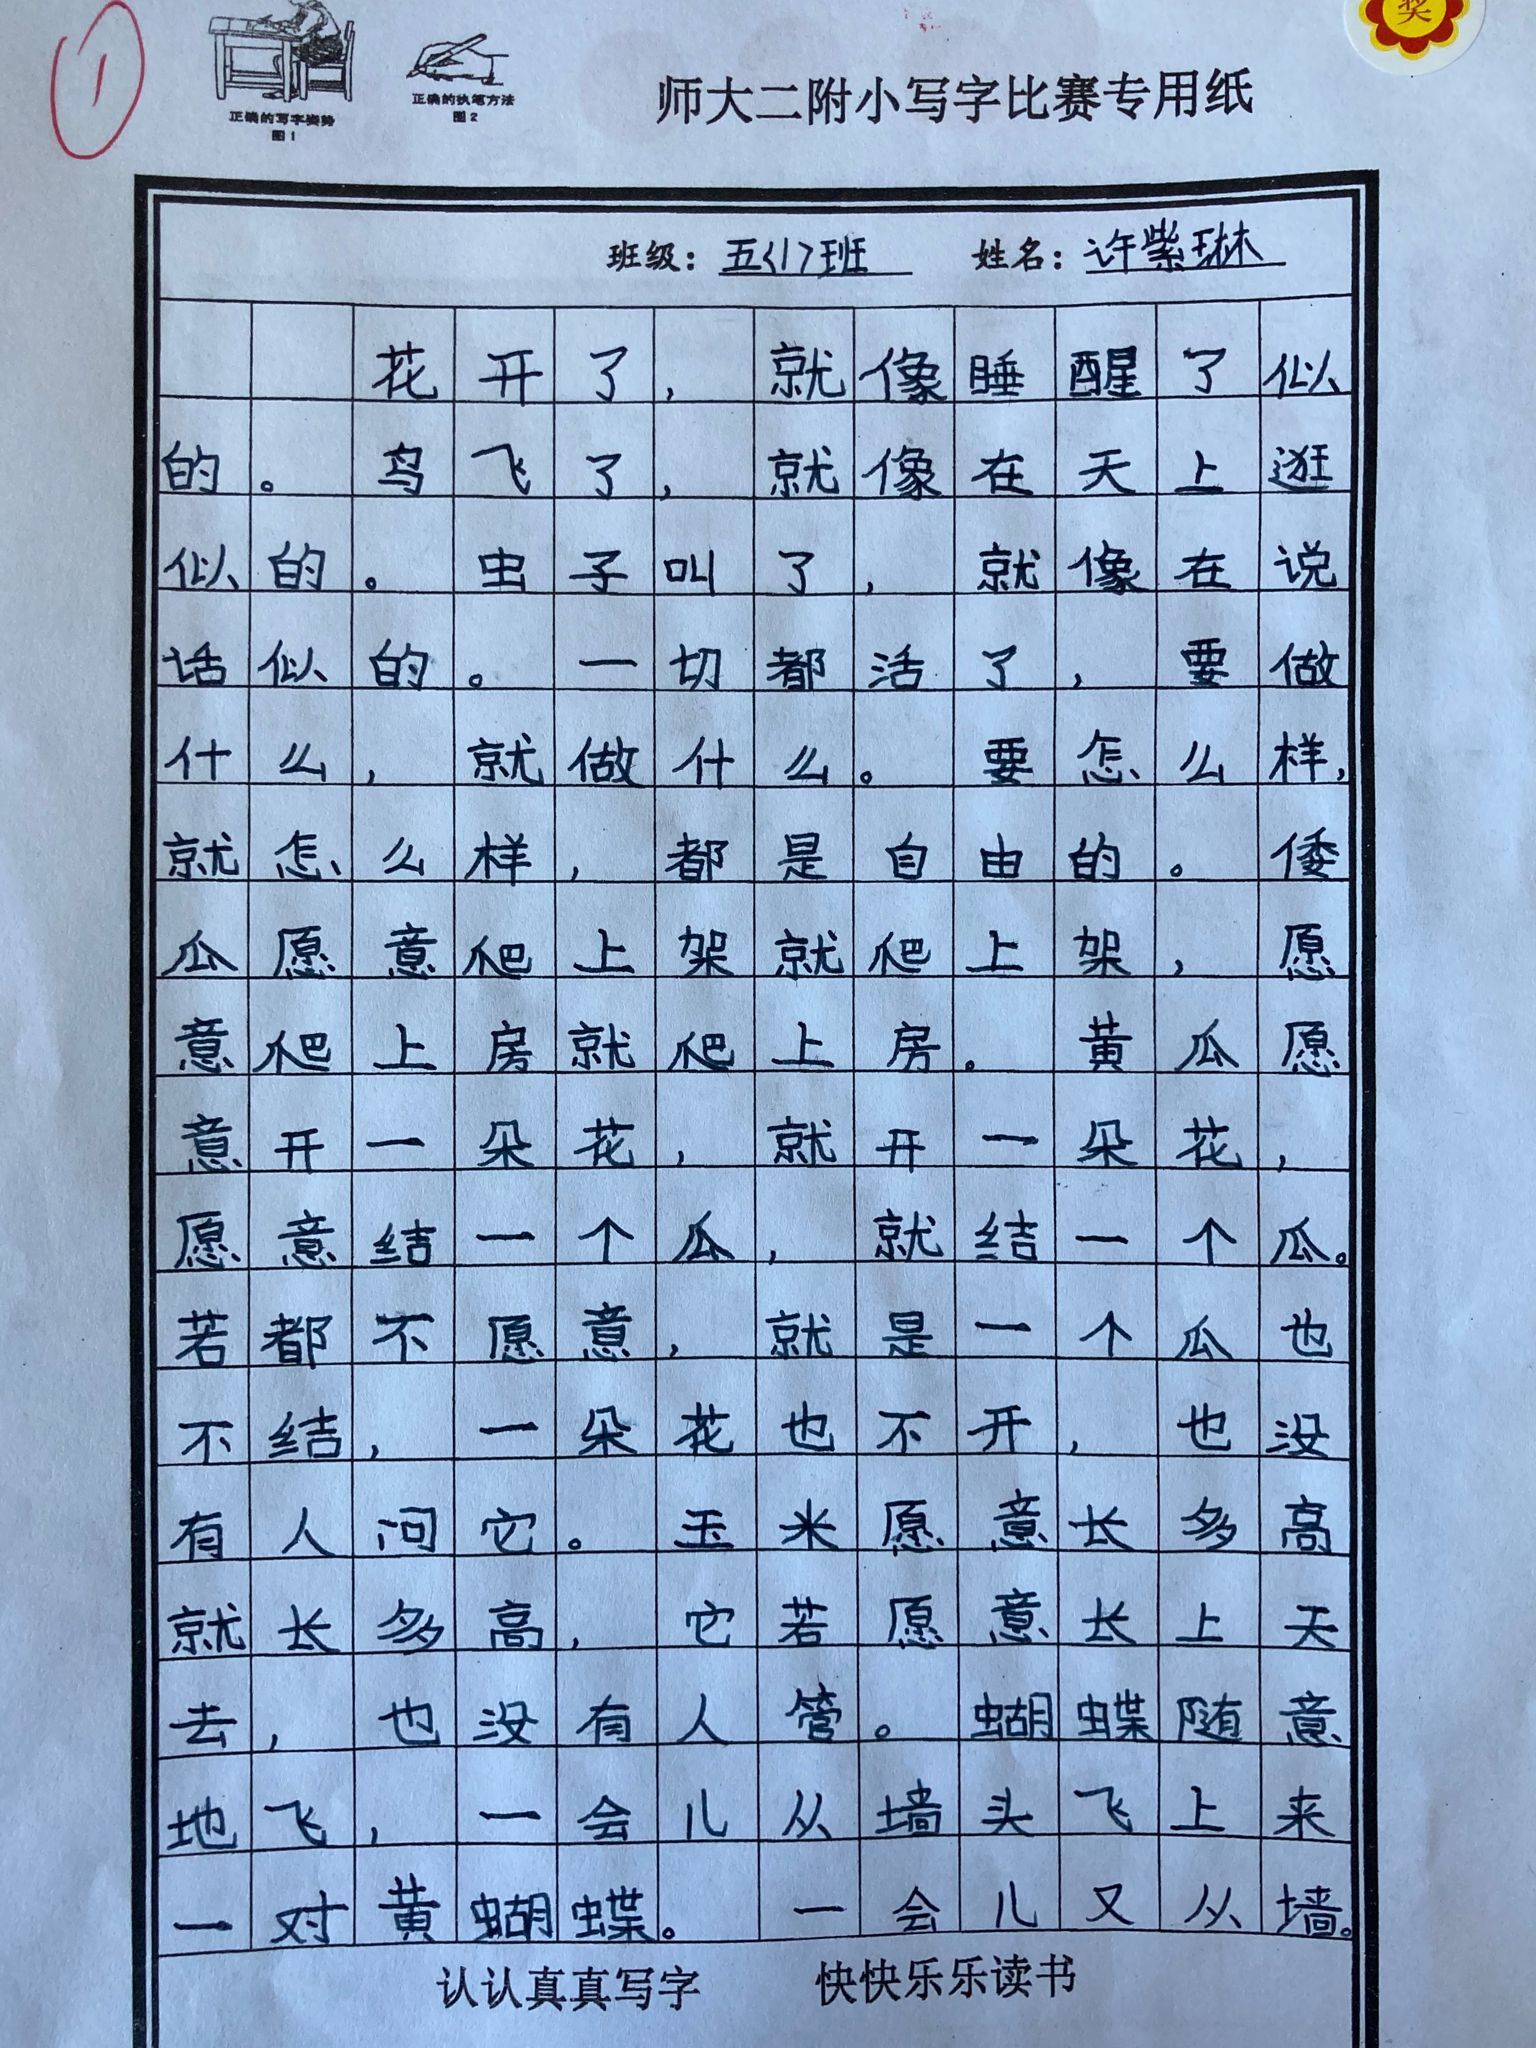 ①
奖
正确的写字姿势
图1
正确的执笔方法
图2
师大二附小写字比赛专用纸
班级：五〈1〉班 姓名：许紫琳
花开了，就像睡醒了似
的。鸟飞了，就像在天上逛
似的。虫子叫了，就像在说
话似的。一切都活了，要做
什么，就做什么。要怎么样，
就怎么样，都是自由的。倭
瓜愿意爬上架就爬上架，愿
意爬上房就爬上房。黄瓜愿
意开一朵花，就开一朵花，
愿意结一个瓜，就结一个瓜。
若都不愿意，就是一个瓜也
不结，一朵花也不开，也没
有人问它。玉米愿意长多高
就长多高，它若愿意长上天
去，也没有人管。蝴蝶随意
地飞，一会儿从墙头飞上来
一对黄蝴蝶。一会儿又从墙。
认认真真写字 快快乐乐读书